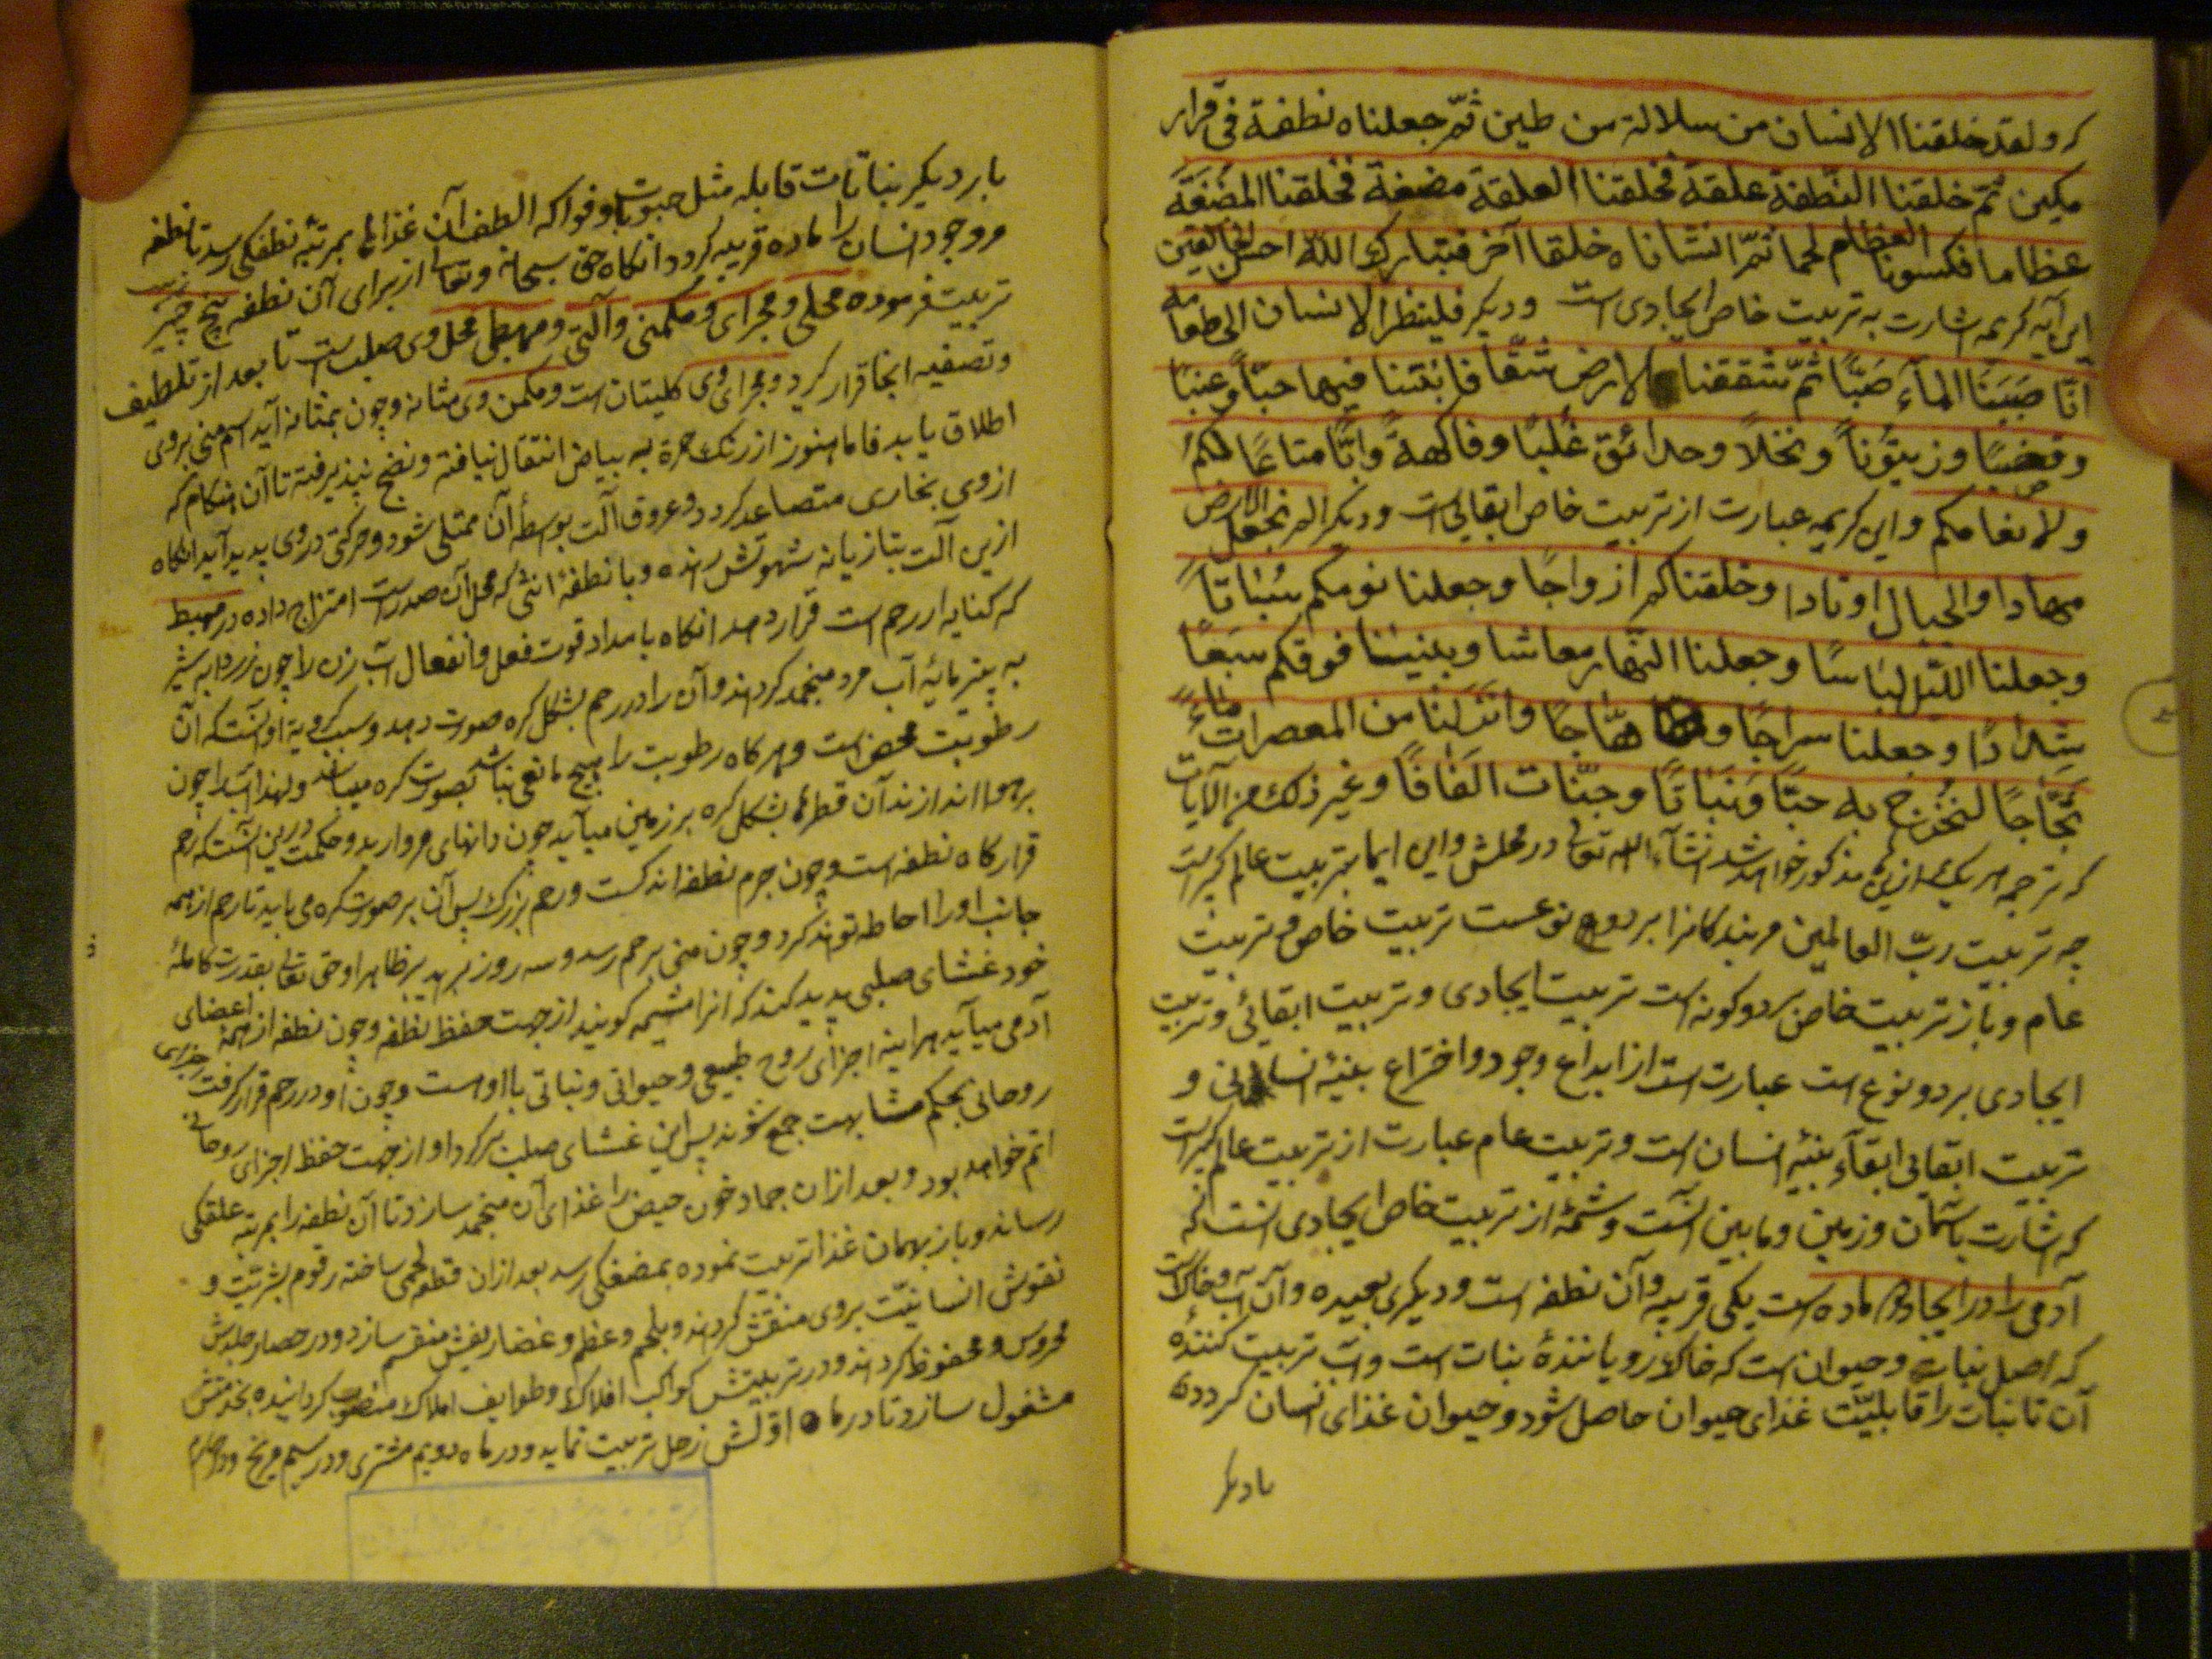 که ولقد خلقنا الانسان من سلالة من طین ثمّ جعلناه نطفة فی قرار
مکین ثمّ خلقنا النّطفة علقة فخلقنا العلقة مضغة فخلقنا المضغة
عظاما فکسونا العظام لحما ثمّ انشاناه خلقا آخر فتبارک الله احسن الخالقین
این آیه کریمه اشارت به تربیت خاص ایجادی است ودیکر فلینظر الانسان الی طعامه
انّا صَبَبنَا المآءَ صَبًّا ثمّ شققنا الارض شقّا فانبتنا فیها حبّا وعنبًا
وقضبًا وزیتونًا ونخلاً وحدائق غُلبًا وفاکهةً وابًّا متاعًا لکم
ولانعامکم واین کریمه عبارت از تربیت خاص ابقائی است ودیکر الم نجعل الارض
مهادا والجبال اوتادا وخلقناکم ازواجًا وجعلنا نومکم سُباتاً
وجعلنا اللّیل لباسًا وجعلنا النّهار معاشا وبنینا فوقکم سَبعًا
شدادًا وجعلنا سراجًا وهّاجًا وانزلنا من المعصرات ماءً
ثجّاجًا لنخرج به حبًّا ونَباتًا وجنّات الفافًا وغیر ذلک من الآیات
که ترجمه هر یک از این مذکور خواهد شد انشآءالله تعالی در محلش واین ایما بتربیت عالم کبیر است
چه تربیت ربّ العالمین مر بندکانرا بر دو نوعست تربیت خاص و تربیت
عام وباز تربیت خاص بر دو کونه است تربیت ایجادی وتربیت ابقائی وتربیت
ایجادی بر دو نوع است عبارت است از ابداع وجود واختراع بنیهٔ انسانی و
تربیت ابقائی ابقآء بنیهٔ انسان است وتربیت عام عبارت از تربیت عالم کبیر است
که اشارت باسمان وزمین ومابین آنست وشمّهٔ از تربیت خاص ایجادی آنست که
آدمی را در ایجاد دو ماده است یکی قریبه وآن نطفه است ودیکری بعیده وآن آب وخاک است
که اصل نبات وحیوان است که خاک رویانندهٔ نبات است وآب تربیت کنندهٔ
آن تا نبات را قابلیّت غذای حیوان حاصل شود وحیوان غذای انسان کردد
بار دیکر
بار دیکر نباتات قابله مثل حبوبات وفواکه الطف آن غذاها بمرتبه نطفکی رسد تا نطفه
مر وجود انسان را ماده قریبه کردد انکاه حق سبحانه وتعالی از برای آن نطفه پنج چیز
تربیت فرموده محلی ومجرای ومکمنی وآلتی ومهبطی محل وی صلب است تا بعد از تلطیف
وتصفیه انجا قرار کیرد ومجرای وی کلیتان است ومکمن وی مثانه وچون بمثانه آید اسم منی بروی
اطلاق یابد فاما هنوز از رنک حمرة به بیاض انتقال نیافته ونضج نپذیرفته تا آن هنکام که
از وی بخاری متصاعد کردد وعروق آلت بوسطهٔ آن ممتلی شود وحرکتی در وی پدید آید انکاه
ازین آلت بتازیانه شهوتش رانده وبا نطفهٔ انثی که محل آن صدر است امتزاج داده در مهبط
که کنایه از رحم است قرار دهد انکاه بامداد قوت فعل وانفعال آب زن را چون زردابه شیر
به پنیرمایهٔ آب مرد منجمد کرداند وآن را در رحم بشکل کره صورت دهد وسبب کرویة او آنست که آن
رطوبت محض است وهر کاه رطوبت را هیچ مانعی نباشد بصورت کره میباشد ولهذا آب را چون
بر هوا اندازند آن قطرها بشکل کره بر زمین میآید چون دانهای مروارید وحکمت درین آنست که رحم
قرارکاه نطفه است وچون جرم نطفه اندکست ورحم بزرک پس آن بر صورت کره می باید تا رحم از همه
جانب او را احاطه تواند کرد وچون منی برحم رسد وسه روز بر آید بر ظاهر او حق تعالی بقدرت کاملهٔ
خود غشای صلبی پدید کند که انرا مشیمه کویند از جهت حفظ نطفه وچون نطفه از همهٔ اعضای
آدمی میآید هراینه اجزای روح طبیعی وحیوانی ونباتی با اوست وچون او در رحم قرار کرفت اجزای
روحانی بحکم مشابهت جمع شوند پس این غشای صلب بر کرد او از جهت حفظ اجزای روحانی
اتم خواهد بود وبعد از ان جماد خون حیض را غذای آن منجمد سازد تا آن نطفه را بمرتبه علقکی
رساند وباز بهمان غذا تربیت نموده بمضغکی رسد بعد از ان قطعه لحمی ساخته رقوم بشریّت و
نقوش انسانیّت بروی منقش کرداند وبلحم وعظم وغضاریفش منقسم سازد ودر حصار جلدش
محروس ومحفوظ کرداند ودر تربیتش کواکب افلاک وطوایف املاک منصوب کردانیده بخدمتش
مشغول سازد تا در ماه اوّلش زحل تربیت نماید ودر ماه دویم مشتری ودر سیم مریخ ودر چهارم